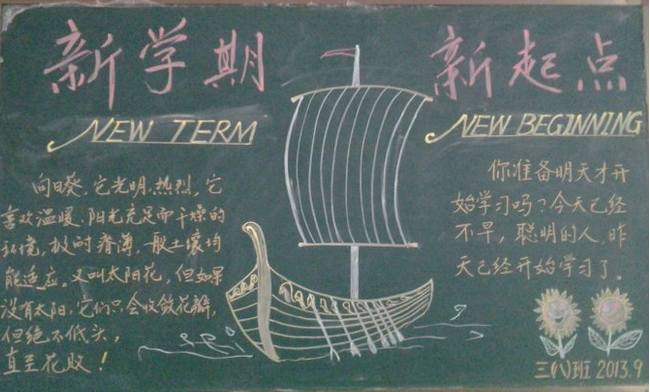 新学期 新起点
NEW TERM
NEW BEGINNING
向日葵，它光明，热烈，它
喜欢温暖，阳光充足而干燥的
环境，极耐瘠薄，一般土壤均
能适应。又叫太阳花，但如果
没有太阳，它们只会收敛花瓣，
但绝不低头，
直至花败！
你准备明天才开
始学习吗？今天已经
不早，聪明的人，昨
天已经开始学习了。
三(1)班 2013.9